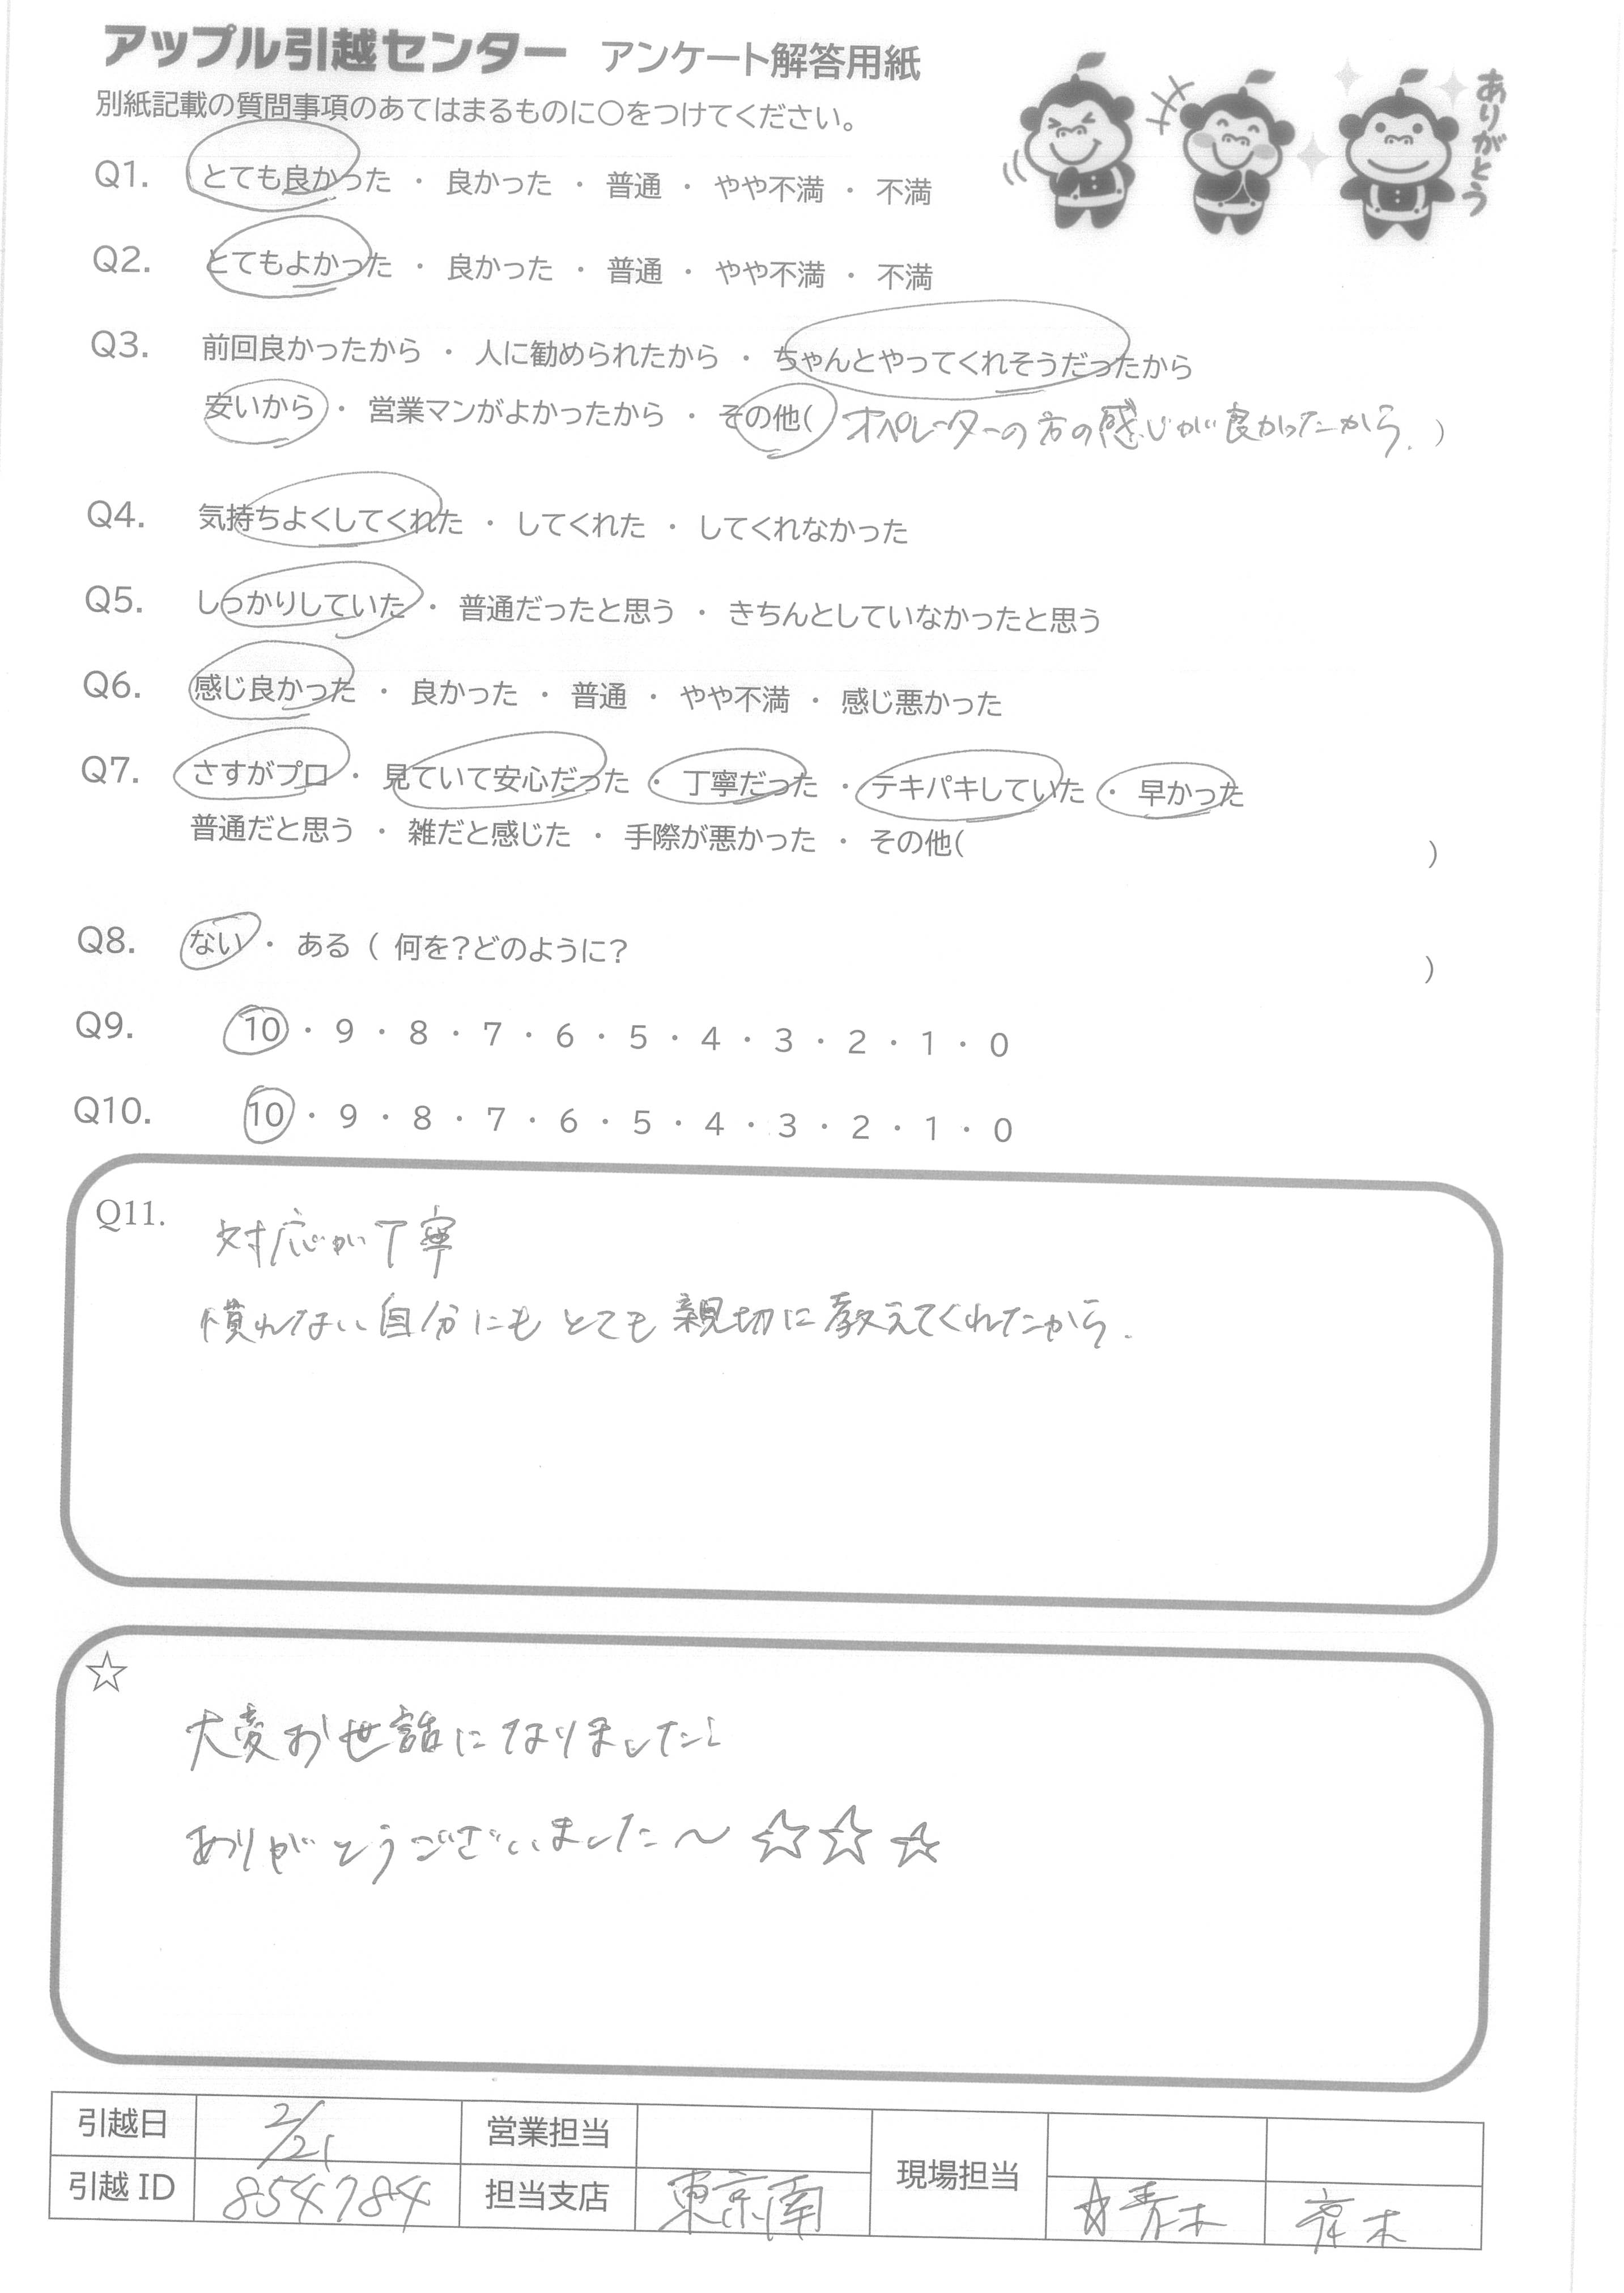 アップル引越センター アンケート解答用紙
別紙記載の質問事項のあてはまるものに○をつけてください。
ありがとう
Q1. とても良かった ・ 良かった ・ 普通 ・ やや不満 ・ 不満
Q2. とてもよかった ・ 良かった ・ 普通 ・ やや不満 ・ 不満
Q3. 前回良かったから ・ 人に勧められたから ・ ちゃんとやってくれそうだったから
安いから ・ 営業マンがよかったから ・ その他( オペレーターの方の感じが良かったから. )
Q4. 気持ちよくしてくれた ・ してくれた ・ してくれなかった
Q5. しっかりしていた ・ 普通だったと思う ・ きちんとしていなかったと思う
Q6. 感じ良かった ・ 良かった ・ 普通 ・ やや不満 ・ 感じ悪かった
Q7. さすがプロ ・ 見ていて安心だった ・ 丁寧だった ・ テキパキしていた ・ 早かった
普通だと思う ・ 雑だと感じた ・ 手際が悪かった ・ その他( )
Q8. ない ・ ある ( 何を?どのように? )
Q9. 10 ・ 9 ・ 8 ・ 7 ・ 6 ・ 5 ・ 4 ・ 3 ・ 2 ・ 1 ・ 0
Q10. 10 ・ 9 ・ 8 ・ 7 ・ 6 ・ 5 ・ 4 ・ 3 ・ 2 ・ 1 ・ 0
Q11. 対応が丁寧
慣れない自分にもとても親切に教えてくれたから.
☆
大変お世話になりました!
ありがとうございました〜 ☆☆☆
引越日 2/21 営業担当 現場担当
引越ID 854784 担当支店 東京南 ☆青木